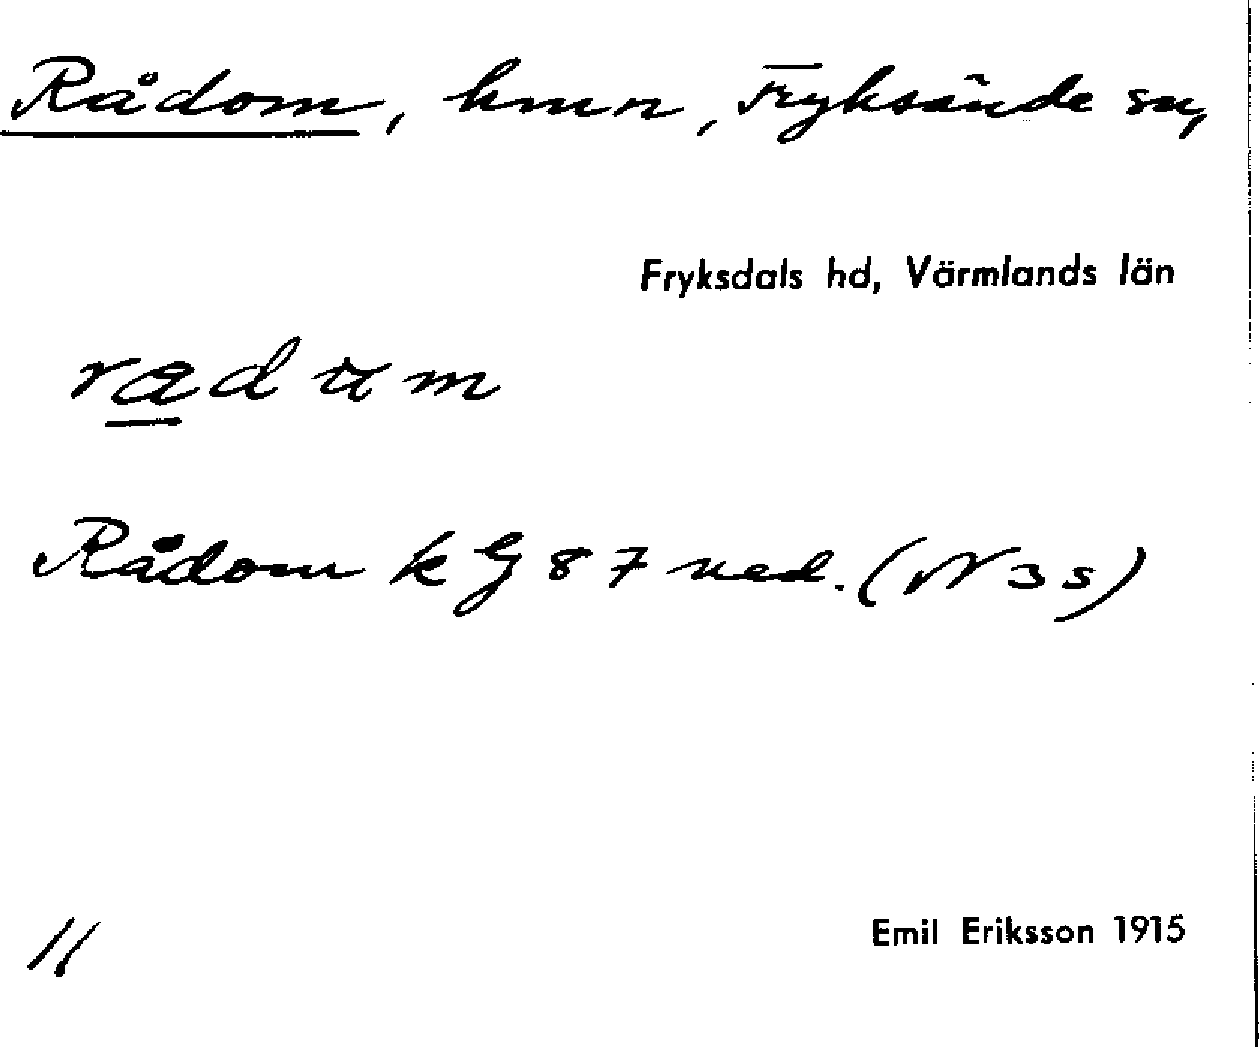 Rådom, hmn, Fryksände sn,
Fryksdals hd, Värmlands län
radum
Rådom k G 87 ned. (N 3 s)
11
Emil Eriksson 1915